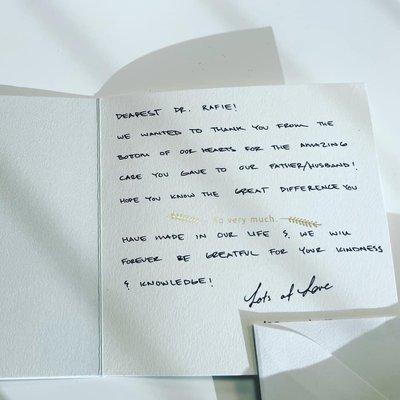 DEAREST DR. RAFIE!
WE WANTED TO THANK YOU FROM THE
BOTOM OF OUR HEARTS FOR THE AMAZING
CARE YOU GAVE TO OUR FATHER/HUSBAND!
HOPE YOU KNOW THE GREAT DIFFERENCE YOU
so very much.
HAVE MADE IN OUR LIFE & WE WILL
FOREVER BE GREATFUL FOR YOUR KINDNESS
& KNOWLEDGE!
Lots of Love